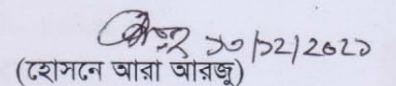 ১০/১২/২০২১
(হোসনে আরা আরজু)